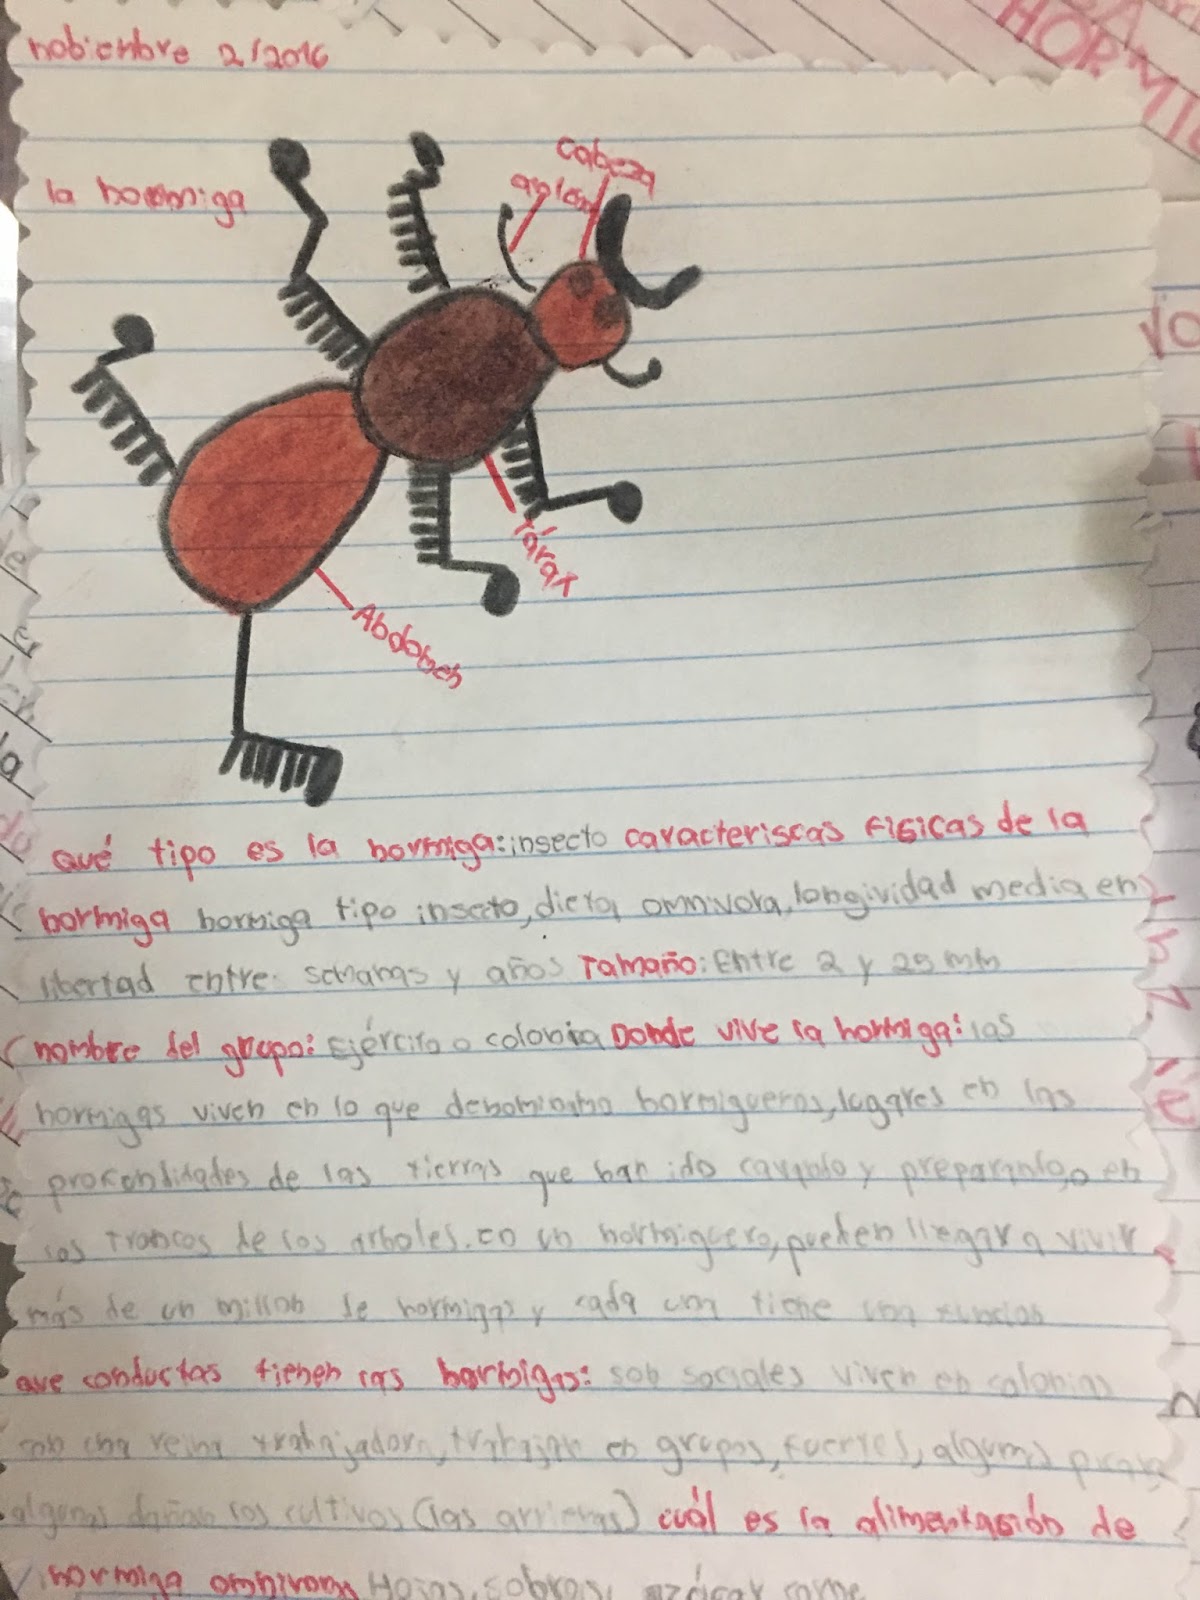 nobienbre 2/2016
HORMIG
la hormiga
Cabeza
Tórax
Abdomen
qué tipo es la hormiga: insecto caracteriscas Fisicas de la
hormiga hormiga tipo insecto, dieta, omnivora, longividad media en
libertad entre semanas y años Tamaño: Entre 2 y 25 mm
nombre del grupo: Ejército o colonia Donde vive la hormiga: las
hormigas viven en lo que denominamo hormigueros, lugares en las
profundidades de las tierras que han ido cavando y preparando, o en
los troncos de los arboles. en un hormiguero, pueden llegar a vivir
más de un millon de hormigas y cada una tiene una funcion
que conductas tienen las hormigas: son sociales viven en colonias
con una reina trabajadora, trabajan en grupos, fuertes, algunas pican
algunas dañan los cultivos (las arrieras) cuál es la alimentasión de
hormiga omnivora Hojas, sobras, azúcar carne